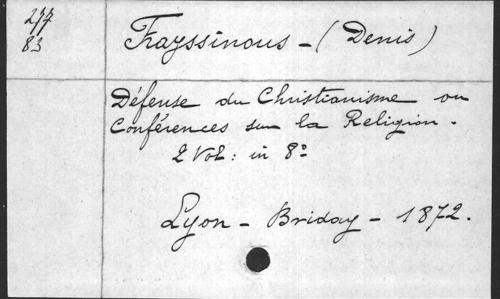 277
83
Frayssinous - (Denis)
Défense du Christianisme ou
Conférences sur la Religion.
2 Vol: in 8°
Lyon - Briday - 1872.